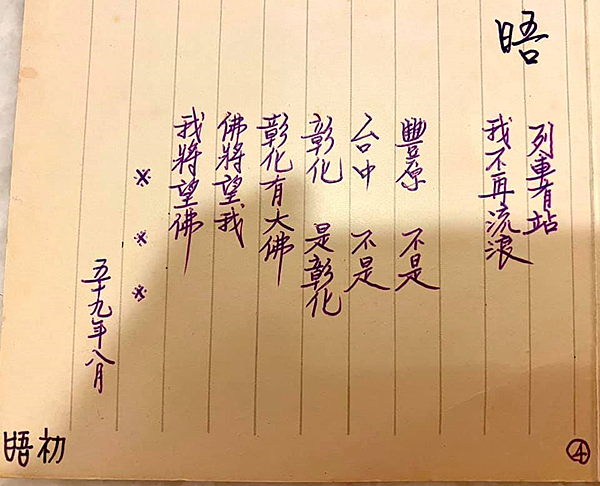 晤
列車有站
我不再流浪
豐原 不是
台中 不是
彰化 是彰化
彰化有大佛
佛將望我
我將望佛
※ ※ ※
五十九年八月
初晤
④